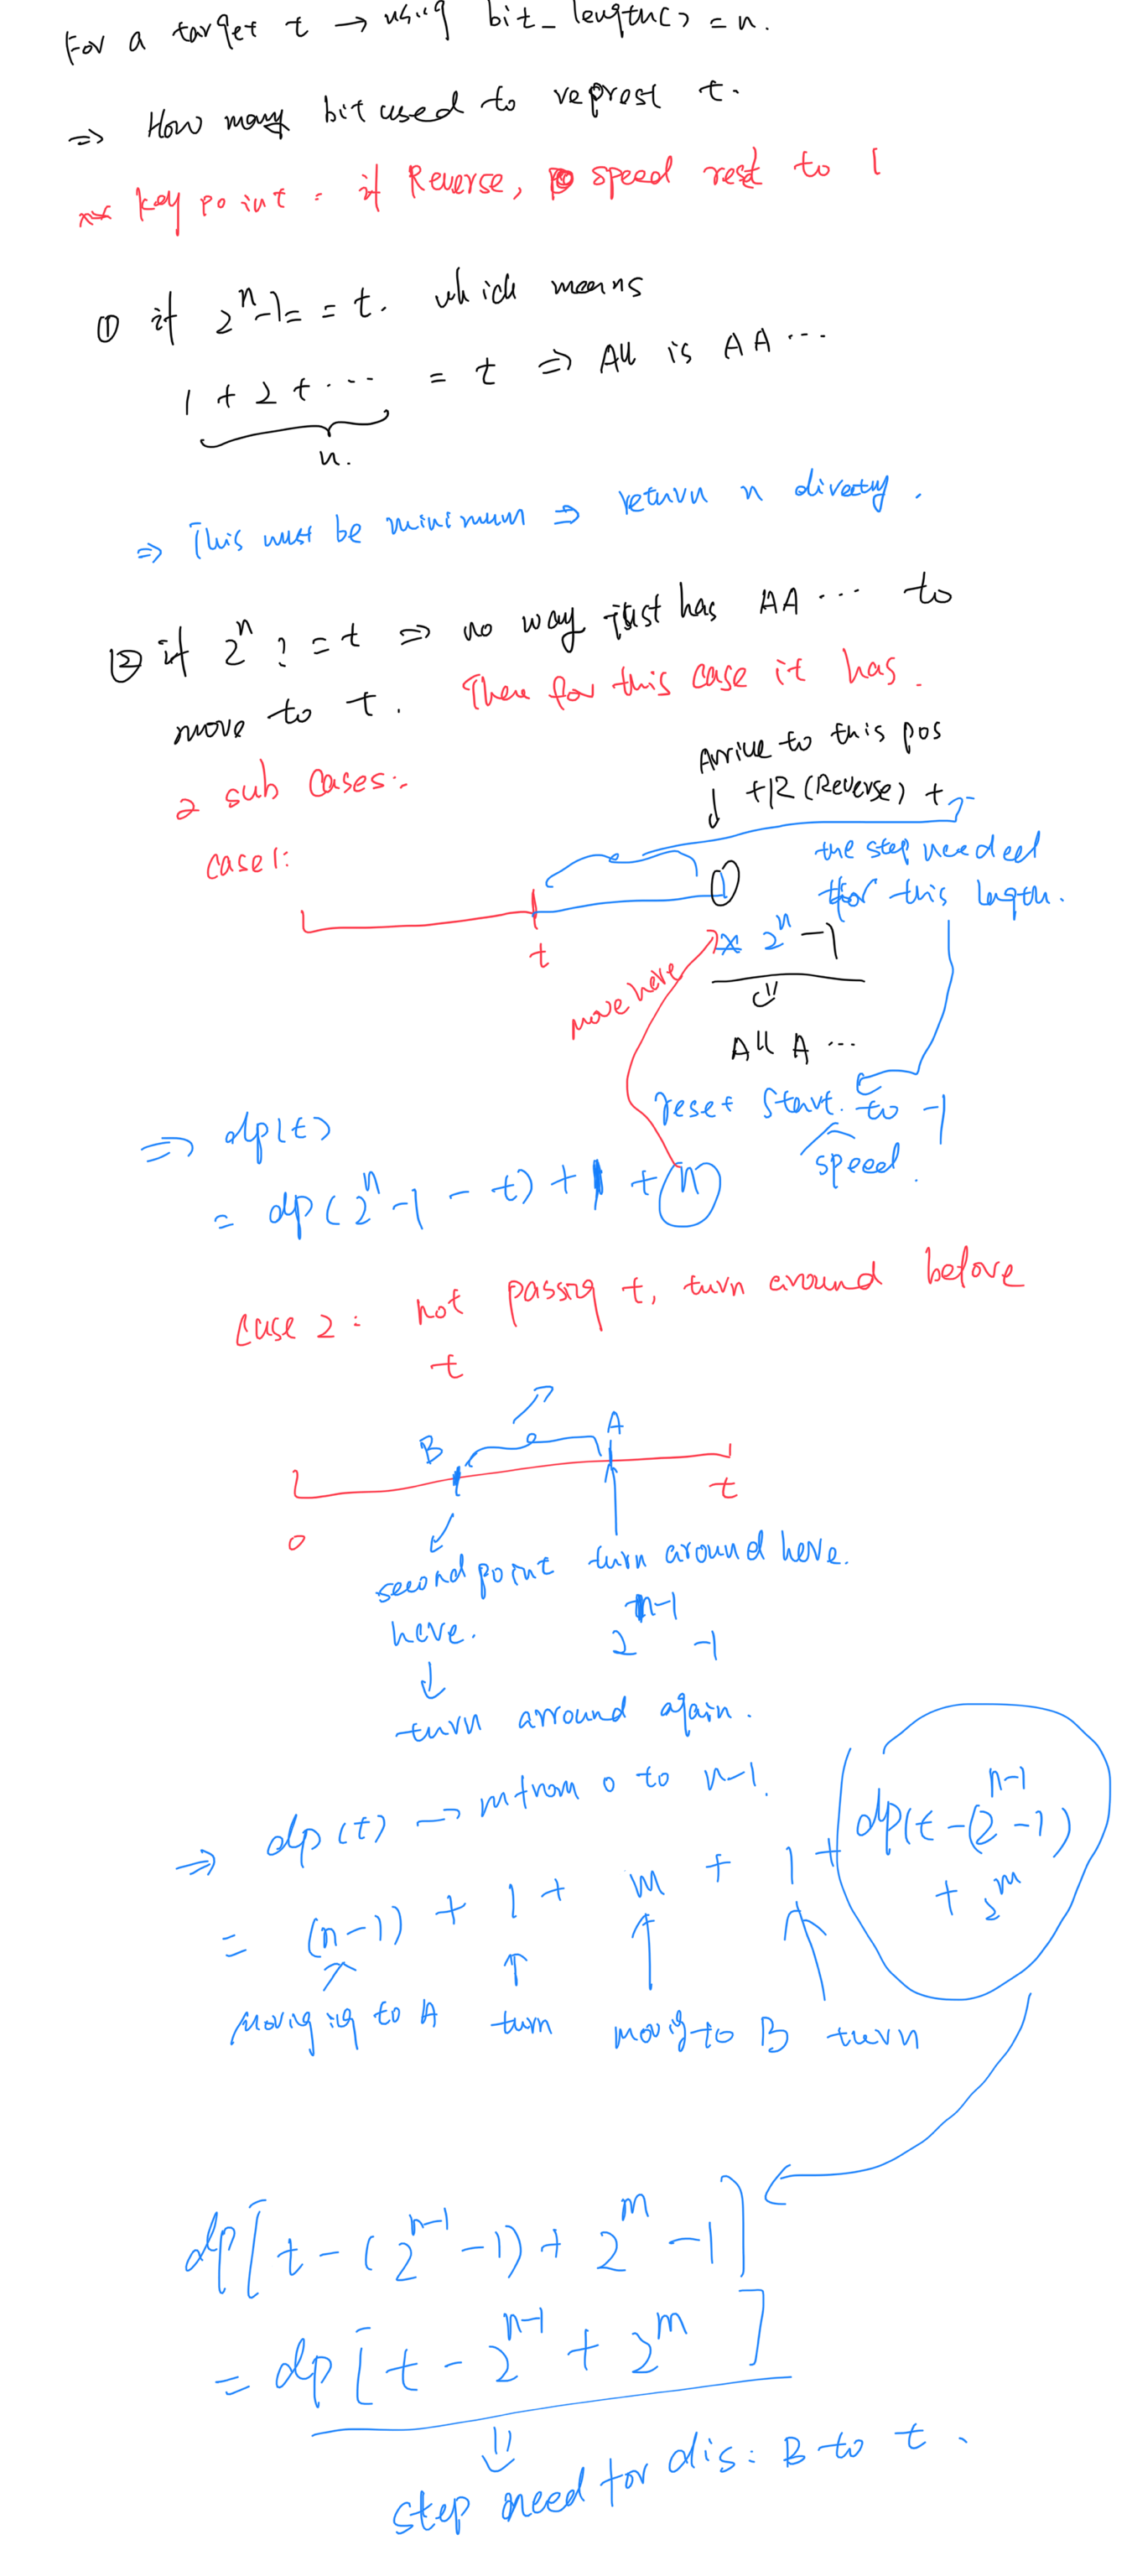 For a target t → using bit_length() = n.
⇒ How many bit used to represt t.
Key point = if Reverse, speed reset to 1
① if 2^n-1 = = t. which means
1 + 2 + ... = t ⇒ All is AA ...
n.
⇒ This must be minimum ⇒ return n directly.
② if 2^n != t ⇒ no way just has AA ... to
move to t. Then for this case it has.
2 sub cases:
Arrive to this pos
↓ +R (Reverse) +
case 1:
the step needed
for this length.
t
2^n - 1
move here
All A ...
reset start. to -1
speed.
⇒ dp(t)
= dp(2^n - 1 - t) + 1 + n
case 2: not passing t, turn around before
t
B
A
0
t
second point turn around here.
here.
2^n-1 - 1
↓
turn arround again.
⇒ dp(t) → m from 0 to n-1.
= (n-1) + 1 + m + 1 + dp(t-(2^n-1 - 1) + 2^m
moving to A turn moving to B turn
dp[t - (2^n-1 - 1) + 2^m - 1]
= dp[t - 2^n-1 + 2^m]
step need for dis: B to t.